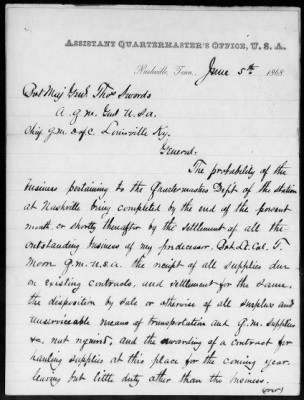 ASSISTANT QUARTERMASTER'S OFFICE, U. S. A.
Nashville, Tenn., June 5th 1868
Bvt Maj Genl Thos Swords
A. Q. M. Genl U.S.A.
Chf Q.M. D of C. Louisville Ky.
General:
The probability of the
business pertaining to the Quartermasters Dept. of the station
at Nashville being completed by the end of the present
month or shortly thereafter by the settlement of all the
outstanding business of my predecessor, Bvt. Lt. Col. F.
Moon Q.M. U.S.A. the receipt of all supplies due
on existing contracts, and settlement for the same,
the disposition by sale or otherwise of all surplus and
unserviceable means of transportation and Q.M. Supplies
&c. not required, and the awarding of a contract for
hauling supplies at this place for the coming year,
leaving but little duty other than the business.
(over)